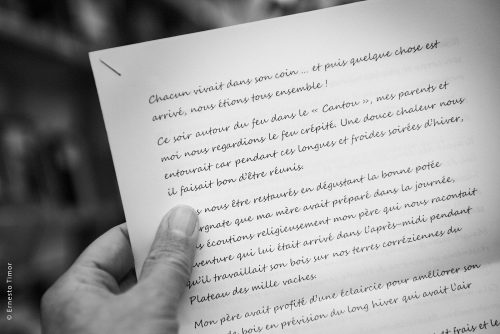 Chacun vivait dans son coin ... et puis quelque chose est
arrivé, nous étions tous ensemble !
Ce soir autour du feu dans le « Cantou », mes parents et
moi nous regardions le feu crépité. Une douce chaleur nous
entourait car pendant ces longues et froides soirées d'hiver,
il faisait bon d'être réunis.
nous être restaurés en dégustant la bonne potée
que ma mère avait préparé dans la journée,
écoutions religieusement mon père qui nous racontait
qui lui était arrivé dans l'après-midi pendant
qu'il travaillait son bois sur nos terres corréziennes du
Plateau des mille vaches.
Mon père avait profité d'une éclaircie pour améliorer son
de bois en prévision du long hiver qui avait l'air
frais et le
© Ernesto Timor